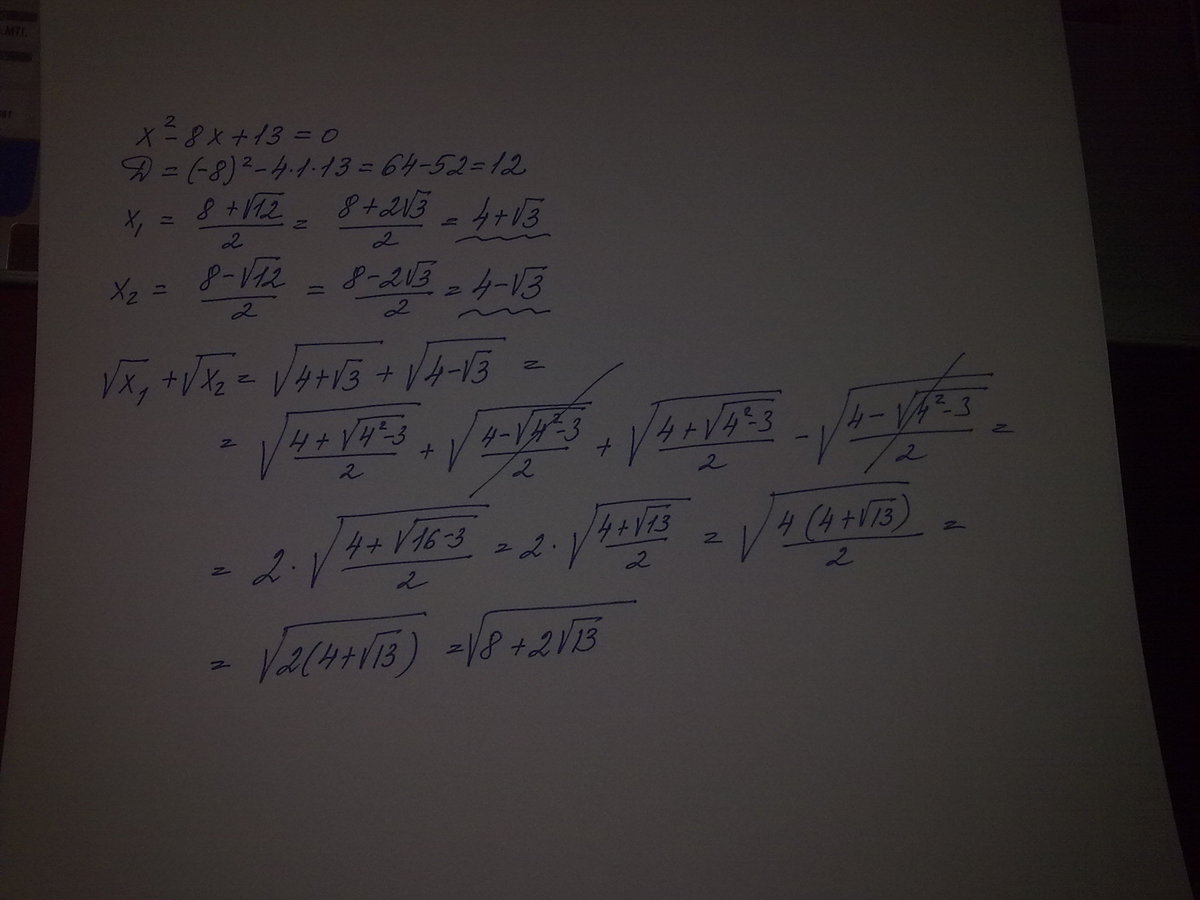 MTI.
x² - 8x + 13 = 0
D = (-8)² - 4·1·13 = 64 - 52 = 12
x₁ = (8 + √12)/2 = (8 + 2√3)/2 = 4 + √3
x₂ = (8 - √12)/2 = (8 - 2√3)/2 = 4 - √3
√x₁ + √x₂ = √(4 + √3) + √(4 - √3) =
= √((4 + √(4² - 3))/2) + √((4 - √(4² - 3))/2) + √((4 + √(4² - 3))/2) - √((4 - √(4² - 3))/2) =
= 2 · √((4 + √(16 - 3))/2) = 2 · √((4 + √13)/2) = √(4(4 + √13)/2) =
= √(2(4 + √13)) = √(8 + 2√13)